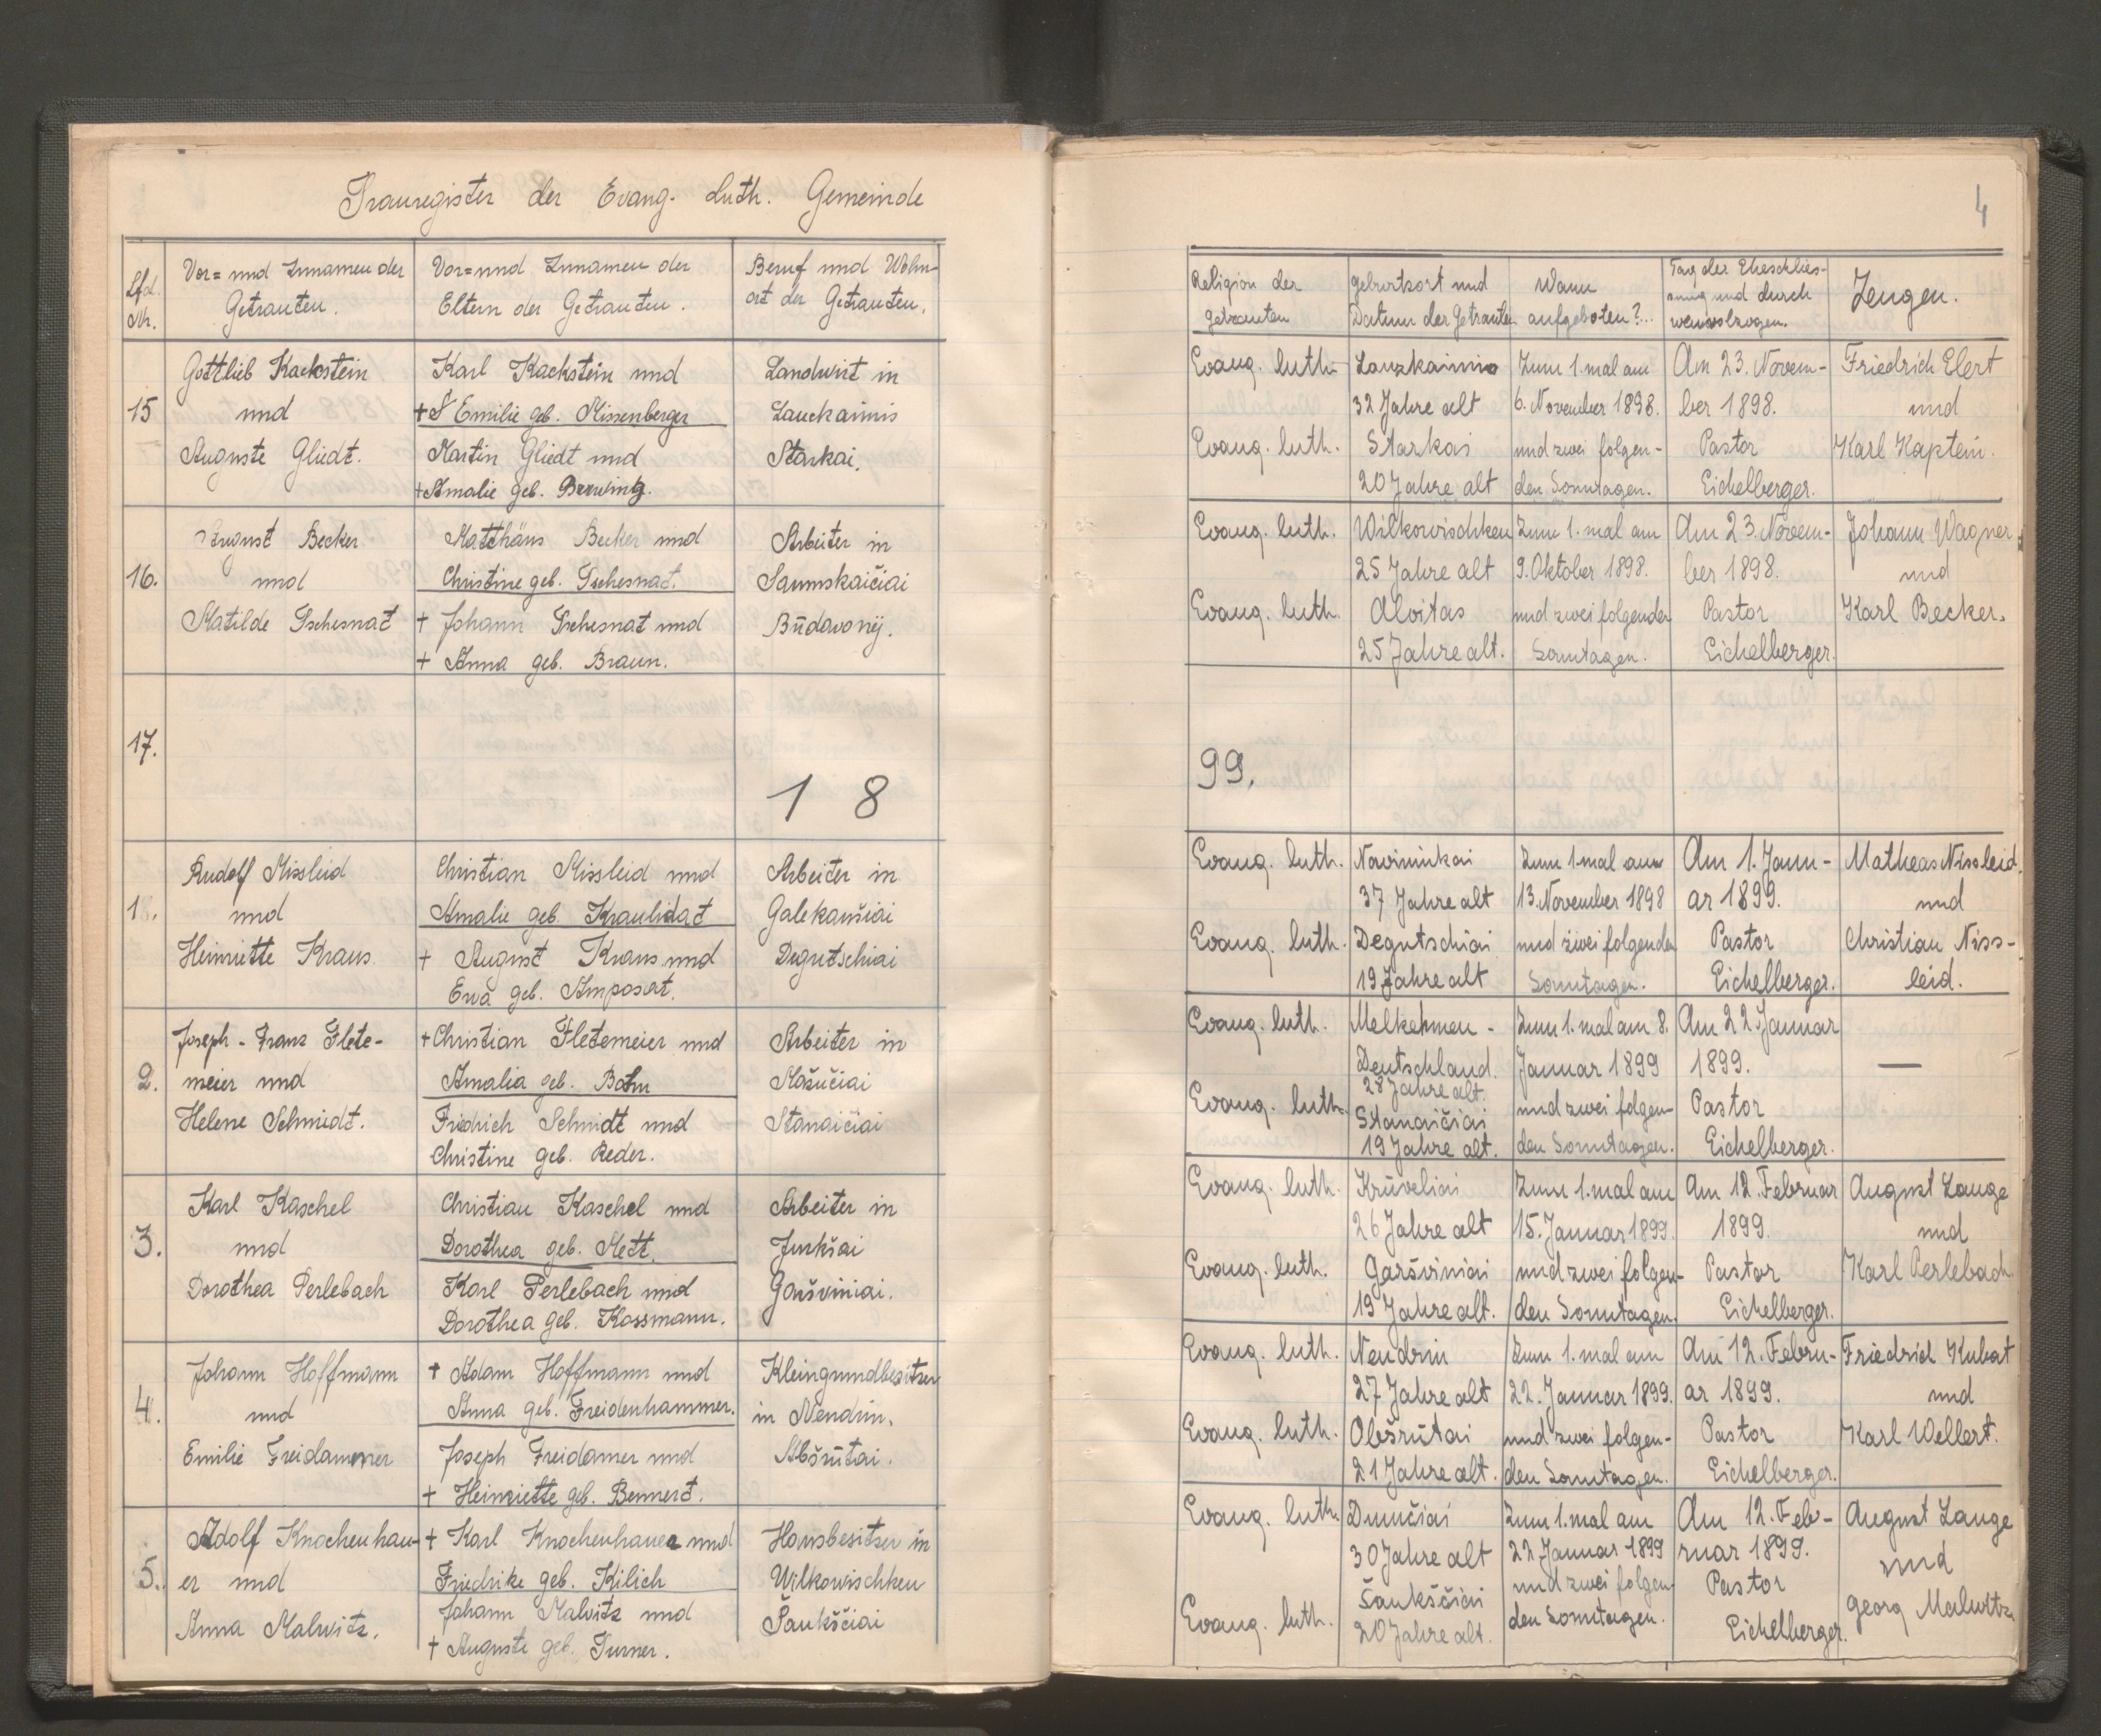 Trauregister der Evang. Luth. Gemeinde
4
Lfd. Nr.
Vor= und Zunamen der
Getrauten.
Vor= und Zunamen der
Eltern der Getrauten.
Beruf und Wohn-
ort der Getrauten.
Religion der
Getrauten
Geburtsort und
Datum der Getrauten
Wann
aufgeboten?...
Tag der Eheschlies-
sung und durch
wen vollzogen.
Zeugen.
15
Gottlieb Kackstein
und
Auguste Gliedt.
Karl Kackstein und
+ Emilie geb. Missenberger
Martin Gliedt und
+ Amalie geb.
Landwirt in
Lauckaimis
Starkai.
Evang. luth.
Evang. luth.
Lauzkaimio
32 Jahre alt
Starkai
20 Jahre alt
Zum 1. mal am
6. November 1898.
und zwei folgen-
den Sonntagen.
Am 23. Novem-
ber 1898.
Pastor
Eichelberger.
Friedrich Elert
und
Karl Kaptein.
16.
August Becker
und
Matilde Tschesnat
Matthäus Becker und
Christine geb. Tschesnat.
+ Johann Tschesnat und
+ Anna geb. Braun.
Arbeiter in
Saunskaičiai
Būdavonÿ.
Evang. luth.
Evang. luth.
Wilkowischken
25 Jahre alt
Alvitas
25 Jahre alt.
Zum 1. mal am
9. Oktober 1898.
und zwei folgenden
Sonntagen.
Am 23. Novem-
ber 1898.
Pastor
Eichelberger.
Johann Wagner
und
Karl Becker.
17.
1 8
99.
1.
Rudolf Missleid
und
Heinriette Kraus
Christian Missleid und
Amalie geb. Kraulidat
+ August Kraus und
Ewa geb. Amposat.
Arbeiter in
Galekaušiai
Degutschiai
Evang. luth.
Evang. luth.
Navininkai
37 Jahre alt
Degutschiai
19 Jahre alt
Zum 1. mal am
13. November 1898
und zwei folgenden
Sonntagen.
Am 1. Janu-
ar 1899.
Pastor
Eichelberger.
Matheas Nissleid,
und
Christian Niss-
leid.
2.
Joseph-Franz Flete-
meier und
Helene Schmidt.
+ Christian Fletemeier und
Amalia geb. Bohm
Friedrich Schmidt und
Christine geb. Reder.
Arbeiter in
Mažučiai
Stanaičiai
Evang. luth.
Evang. luth.
Melkehmen-
Deutschland.
28 Jahre alt.
Stanaičiai
19 Jahre alt.
Zum 1. mal am 8.
Januar 1899
und zwei folgen-
den Sonntagen.
Am 22. Januar
1899.
Pastor
Eichelberger.
—
3.
Karl Kaschel
und
Dorothea Perlebach
Christian Kaschel und
Dorothea geb. Mett.
Karl Perlebach und
Dorothea geb. Kossmann.
Arbeiter in
Junkšai
Garšviniai.
Evang. luth.
Evang. luth.
Krūveliai
26 Jahre alt
Garšviniai
19 Jahre alt.
Zum 1. mal am
15. Januar 1899.
und zwei folgen-
den Sonntagen.
Am 12. Februar
1899.
Pastor
Eichelberger.
August Lange
und
Karl Perlebach.
4.
Johann Hoffmann
und
Emilie Freidammer
+ Adam Hoffmann und
Anna geb. Freidenhammer.
Joseph Freidamer und
+ Heinriette geb. Bennert.
Kleingrundbesitzer
in Nendrin.
Abšrūtai.
Evang. luth.
Evang. luth.
Nendrin
27 Jahre alt
Obšrūtai
21 Jahre alt.
Zum 1. mal am
22. Januar 1899.
und zwei folgen-
den Sonntagen.
Am 12. Febru-
ar 1899.
Pastor
Eichelberger.
Friedrich Kubat
und
Karl Wellert.
5.
Adolf Knochenhau-
er und
Anna Malwitz.
+ Karl Knochenhauer und
Friedrike geb. Kilich
Johann Malvitz und
+ Auguste geb. Turner.
Hausbesitzer in
Wilkowischken
Šaukščiai
Evang. luth.
Evang. luth.
Dunčiai
30 Jahre alt
Šaukščiai
20 Jahre alt.
Zum 1. mal am
22 Januar 1899
und zwei folgen-
den Sonntagen.
Am 12. Feb-
ruar 1899.
Pastor
Eichelberger.
August Lange
und
Georg Malwitz